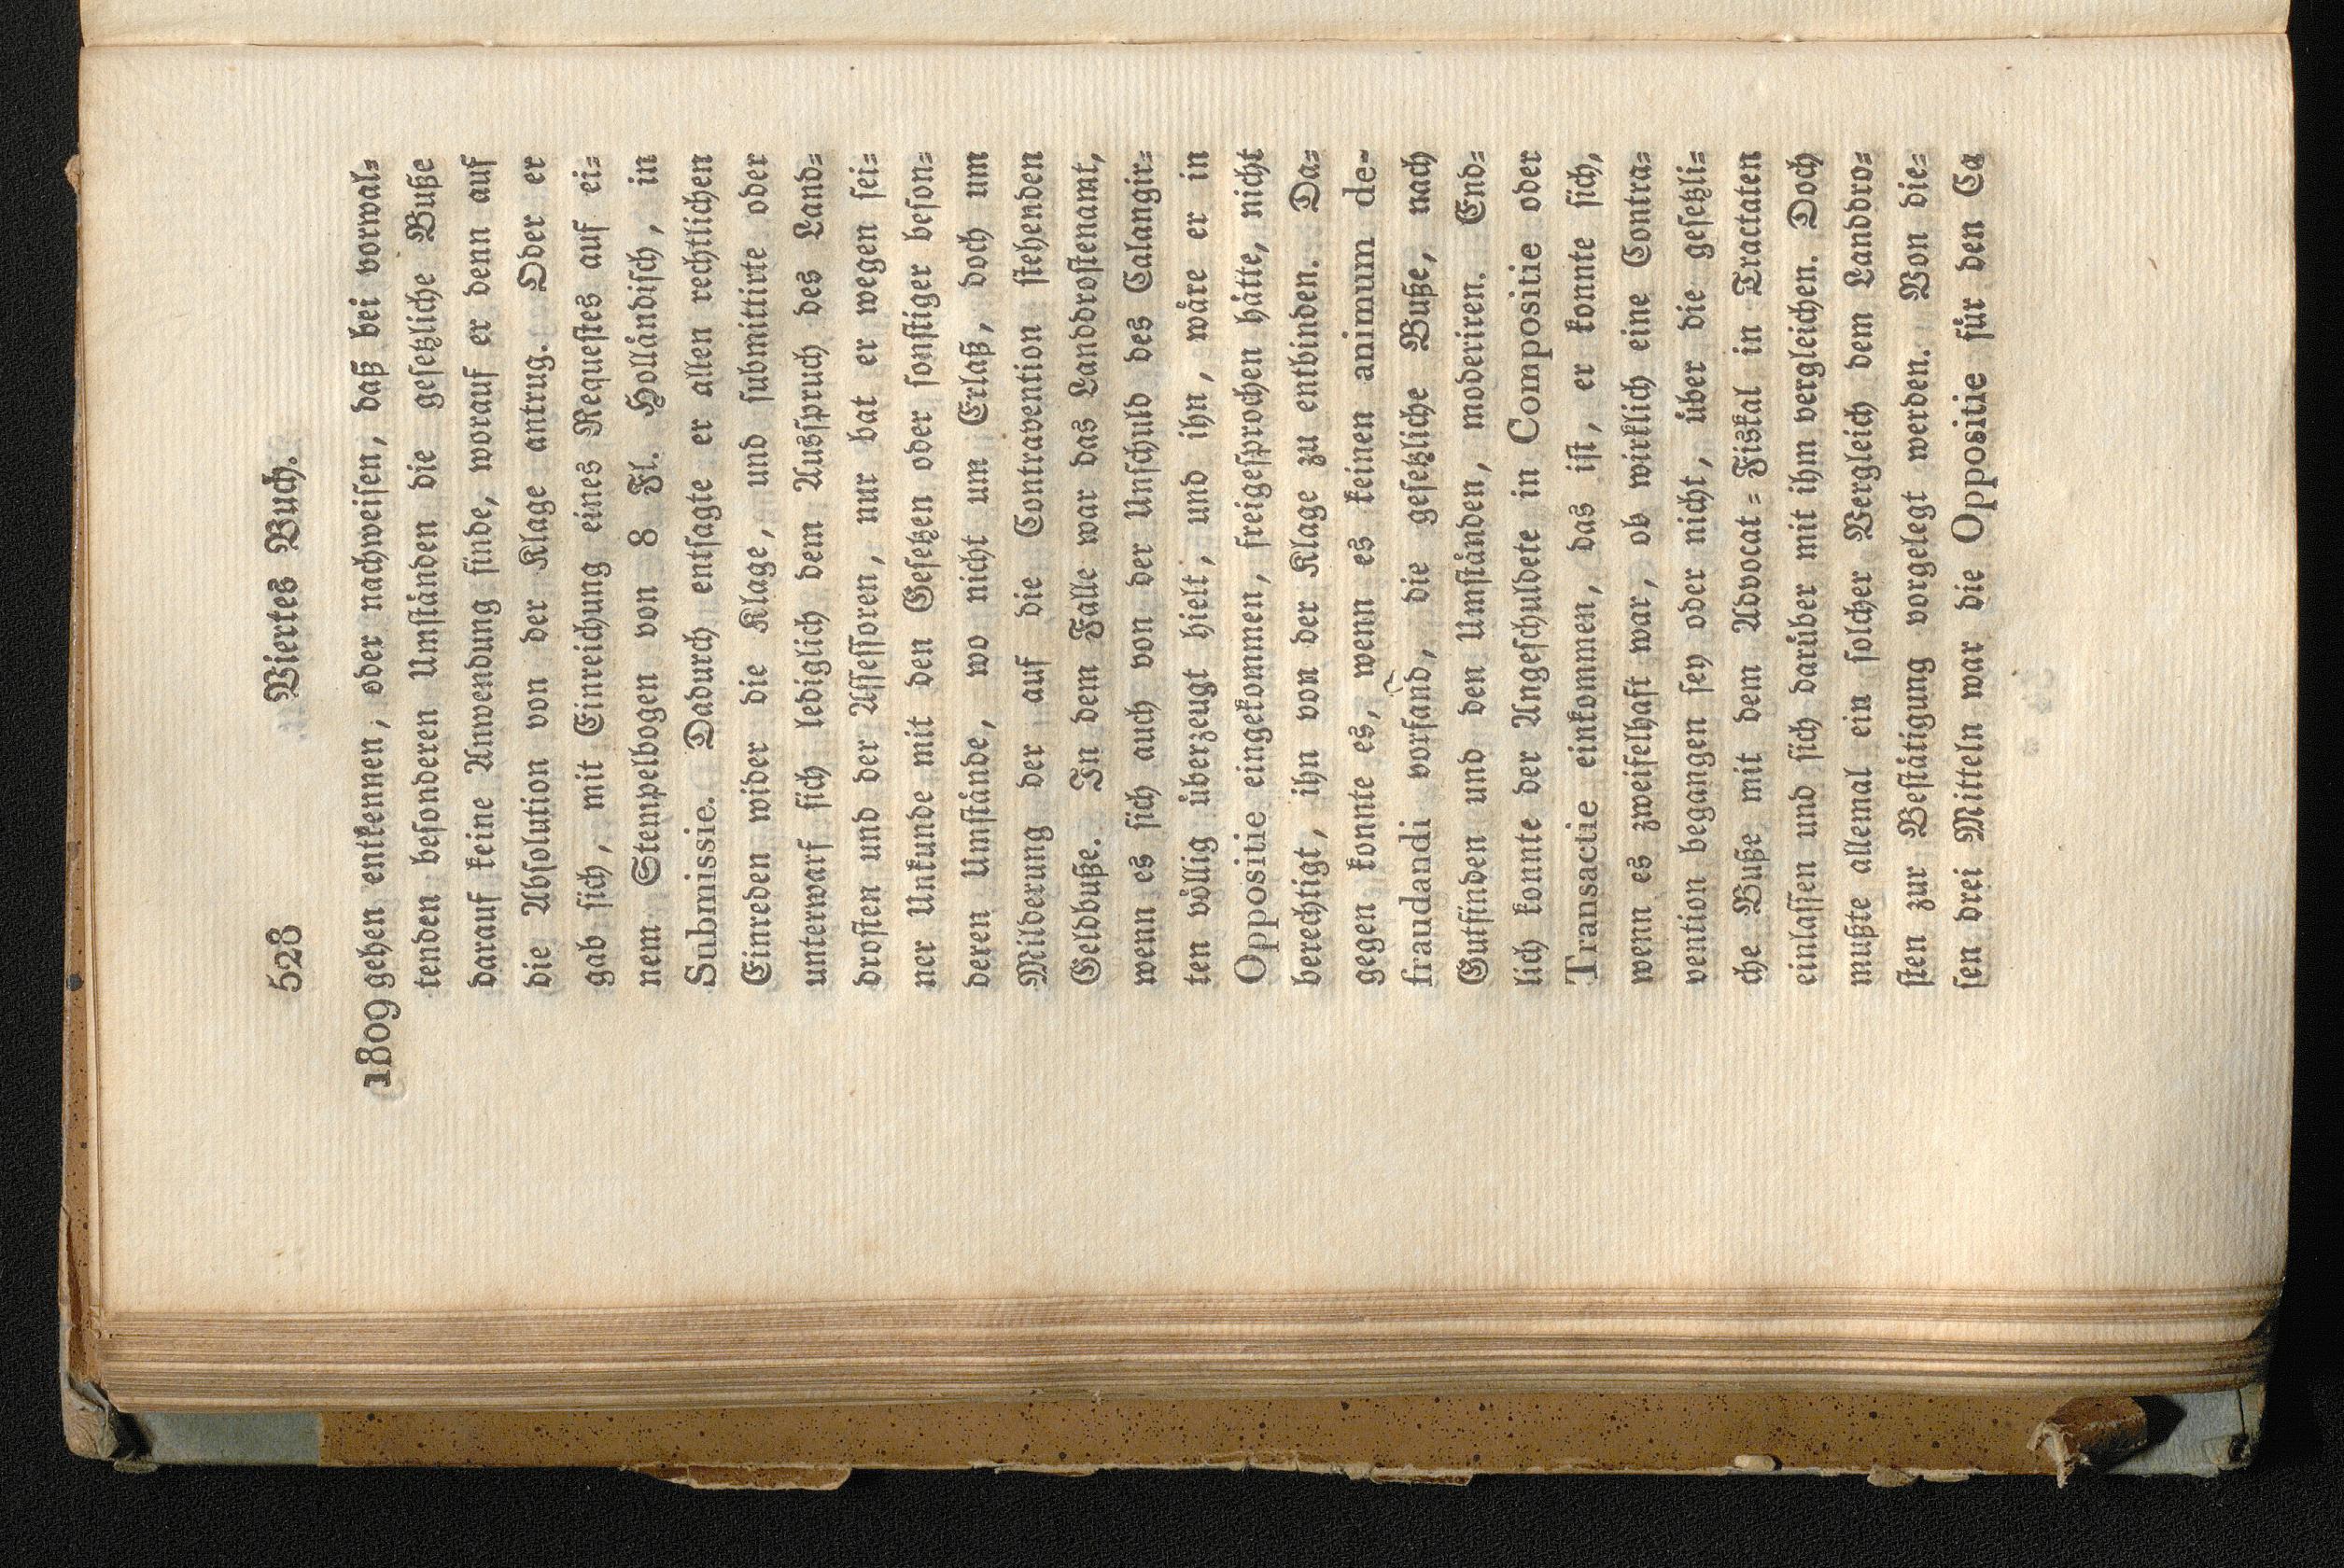 528 Viertes Buch.
1809 gehen entkennen, oder nachweisen, daß bei vorwal⸗
tenden besonderen Umständen die gesetzliche Buße
darauf keine Anwendung finde, worauf er denn auf
die Absolution von der Klage antrug. Oder er
gab sich, mit Einreichung eines Requestes auf ei⸗
nem Stempelbogen von 8 Fl. Holländisch, in
Submissie. Dadurch entsagte er allen rechtlichen
Einreden wider die Klage, und submittirte oder
unterwarf sich lediglich dem Ausspruch des Land⸗
drosten und der Assessoren, nur bat er wegen sei⸗
ner Unkunde mit den Gesetzen oder sonstiger beson⸗
deren Umstände, wo nicht um Erlaß, doch um
Milderung der auf die Contravention stehenden
Geldbuße. In dem Falle war das Landdrostenamt,
wenn es sich auch von der Unschuld des Calangir⸗
ten völlig überzeugt hielt, und ihn, wäre er in
Oppositie eingekommen, freigesprochen hätte, nicht
berechtigt, ihn von der Klage zu entbinden. Da⸗
gegen konnte es, wenn es keinen animum de-
fraudandi vorfand, die gesetzliche Buße, nach
Gutfinden und den Umständen, moderiren. End⸗
lich konnte der Angeschuldete in Compositie oder
Transactie einkommen, das ist, er konnte sich,
wenn es zweifelhaft war, ob wirklich eine Contra⸗
vention begangen sey oder nicht, über die gesetzli⸗
che Buße mit dem Advocat⸗Fiskal in Tractaten
einlassen und sich darüber mit ihm vergleichen. Doch
mußte allemal ein solcher Vergleich dem Landdro⸗
sten zur Bestätigung vorgelegt werden. Von die⸗
sen drei Mitteln war die Oppositie für den Ca